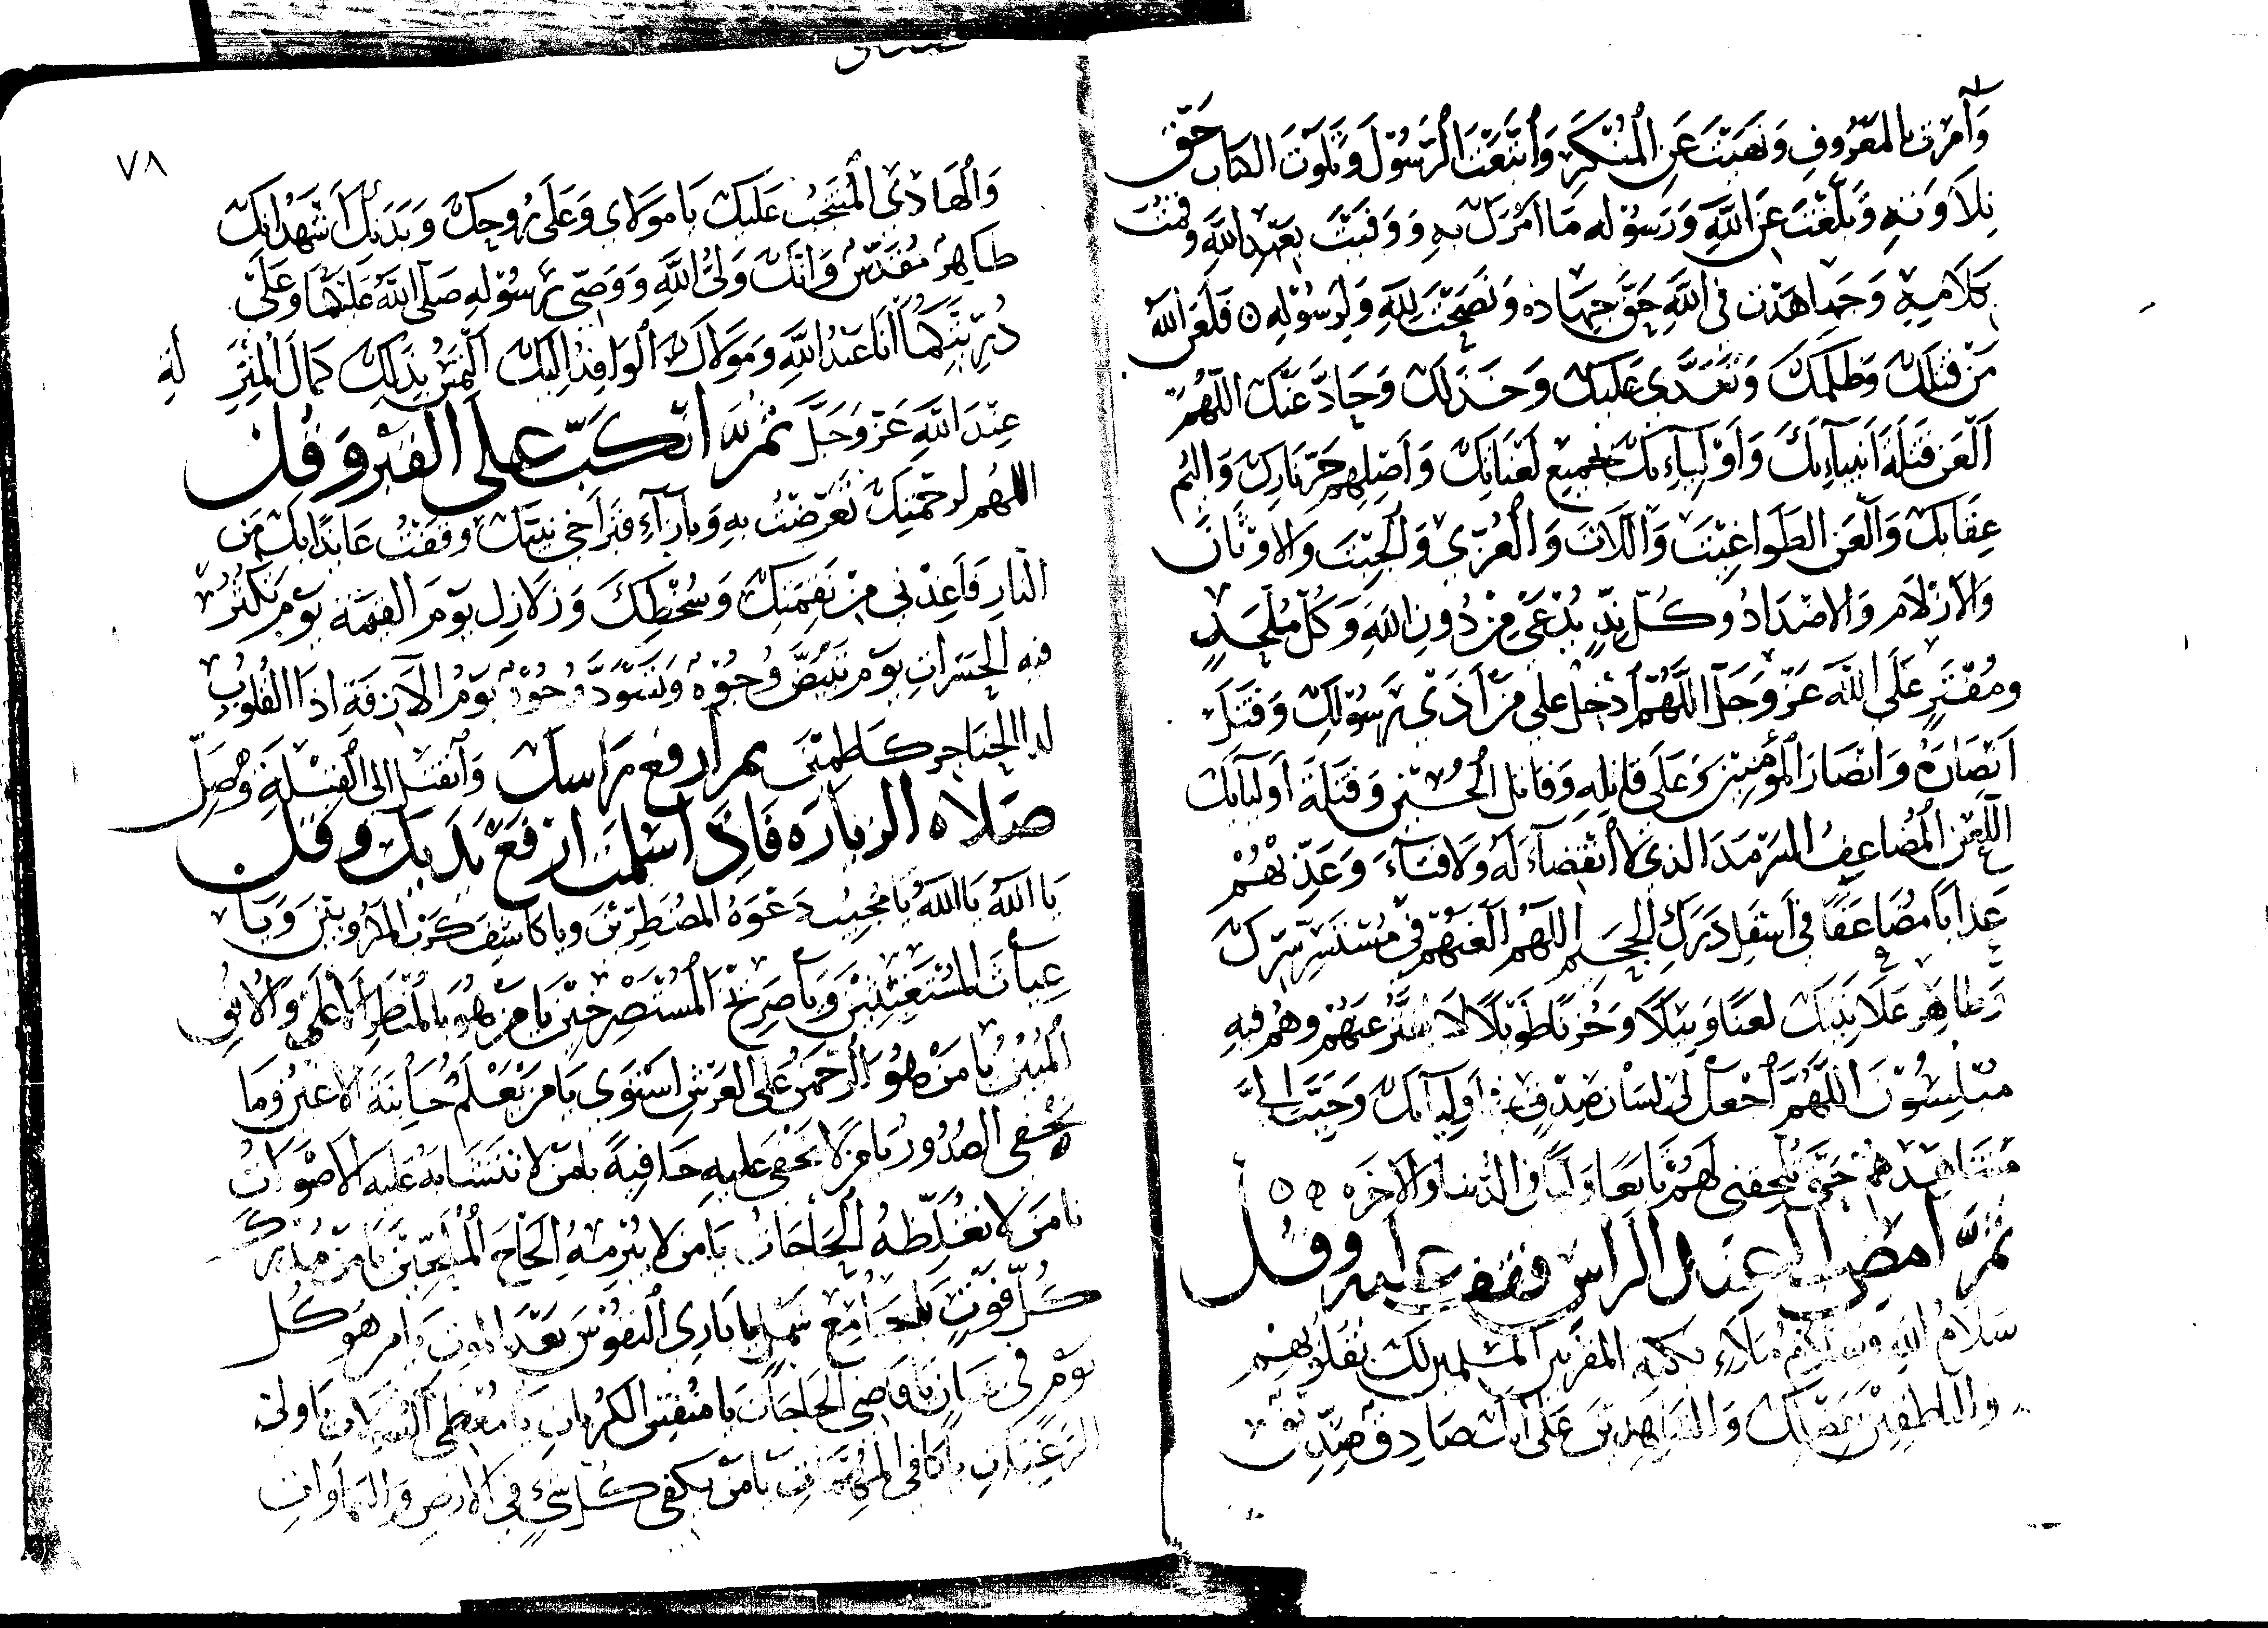 وَآمَرْتَ بالمَعْرُوفِ وَنَهَيْتَ عَنِ المُنْكَرِ وَاتَّبَعْتَ الرَّسُوْلَ وَتَلَوْتَ الكتابَ حَقّ
تِلَاوَتِهِ وَبَلَّغْتَ عَنِ اللَّهِ وَرَسُوْلِه مَا أمَرَكَ بِهِ وَوَفَيْتَ بِعَهْدِ اللَّهِ وَتَمَّتْ
بِكَ كَلَامِهِ وَجَاهَدْتَ فِى اللَّهِ حَقَّ جِهَادِه وَنَصَحْتَ لِلَّهِ وَلِرَسُوْلِهِ ٥ فَلَعَنَ اللَّهُ
مَنْ قَتَلَكَ وَظَلَمَكَ وَتَعَدَّى عَلَيْكَ وَخَذَلَكَ وَحَادَّ عَنْكَ اللّهُمَّ
الْعَنْ قَتَلَةَ أنْبِيَآءِكَ وَأوْلِيَاءِكَ بِجَمِيْعِ لَعَنَاتِكَ وَأصْلِهِمْ حَرَّ نَارِكَ وَأليْمَ
عِقَابِكَ وَالْعَنِ الطَّوَاغِيْتَ وَاللَّاتَ وَالْعُزَّى وَالْجِبْتَ وَالأوْثَانَ
وَالأزْلَامَ وَالأضْدَادَ وَكُلَّ نِدٍّ يُدْعَى مِنْ دُونِ اللَّهِ وَكُلَّ مُلْحِدٍ
وَمُفْتَرٍ عَلَى اللَّهِ عَزَّ وَجَلَّ اللَّهُمَّ أدْخِلْ عَلَى مَنْ آذَىْ رَسُوْلَكَ وَقَتَلَ
أنْصَارَهُ وَانْصَارَ الْمُؤْمِنِيْنَ وَعَلَى قَاتِلِهِ وَقَاتِلِ الْحُسَيْنِ وَقَتَلَةِ أوليَائِكَ
اللَّعْنَ الْمُضَاعِفَ السَّرْمَدَ الذى لَا انْقِضَآءَ لَهُ وَلَا فَنَآءَ وَعَذِّبْهُمْ
عَذَابًا مُضَاعَفًا فِى أسْفَلِ دَرَكِ الْجَحِيْمِ اللَّهُمَّ الْعَنْهُمْ فِىْ مُسْتَسِرِّ سِرِّكَ
وَظَاهِرِ عَلَانِيَتِكَ لَعْنًا وَبِيْلًا وَحُزْنًا طَوِيْلًا لَا يُفَتَّرُ عَنْهُمْ وَهُمْ فِيهِ
مُبْلِسُوْنَ اللَّهُمَّ اجْعَلْ لِى لِسَانَ صِدْقٍ فى أوليَآئِكَ وَحَبِّبْ إلَىَّ
مَشَاهِدَهُمْ حَتَّى تُلْحِقَنِى لَهُمْ تَابِعًا وَلِيًّا فى الدُّنْيَا وَالآخِرَه
ثُمَّ امْضِ الى عِنْدِ الرَّاسِ وَقِفْ عَلَيْهِ وَقُل
سَلَامُ اللَّهِ وَسَلَامُ مَلآءِكَتِهِ المُقَرَّبِيْنَ الْمُسْلِمِيْنَ لَكَ بِقُلُوْبِهِمْ
وَالنَّاطِقِيْنَ بِفَضْلِكَ وَالشَّاهِدِيْنَ عَلَى أنَّكَ صَادِقٌ صِدِّيْقٌ
٧٨
وَالْهَادِى الْمُنْتَجَبُ عَلَيْكَ يَا مَوْلَاى وَعَلَى رُوحِكَ وَبَدَنِكَ أشْهَدُ انَّكَ
طَاهِرٌ مُقَدَّسٌ وَانَّكَ وَلِىُّ اللَّهِ وَوَصِىُّ رَسُوْلِهِ صَلَّى اللَّهُ عَلَيْهِمَا وَعَلَى
ذُرِّيَّتِكُمَا أنَا عَبْدُ اللَّهِ وَمَوْلَاكَ الْوَافِدُ إلَيْكَ ألْتَمِسُ بِذَلِكَ كَمَالَ الْمَنْزِلَةِ
عِنْدَ اللَّهِ عَزَّ وَجَلَّ ثُمَّ انْكَبَّ على القَبْرِ وَقُل
اللهُم لِرَحْمَتِكَ تَعَرَّضْتُ بِهِ وَبِإزَآءِ قَبْرِ أخِى نَبِيِّكَ وَقَفْتُ عَائِذًا بِكَ مِنَ
النَّارِ فَأعِذْنِى مِنْ نَقِمَتِكَ وَسُخْطِكَ وَزَلَازِلِ يَوْمَ القِيمَة يَوْمَ تَكْثُرُ
فِيهِ الْحَسَرَاتِ يَوْمَ تَبْيَضُّ وُجُوْهٌ وَتَسْوَدُّ وُجُوْهٌ يَوْمَ الآزِفَةِ اذِ الْقُلُوْبُ
لَدَا الْحَنَاجِرِ كَاظِمِيْنَ ثم أرفع رَاسك وَأنْفَتِلْ الى الْقِبْلَةِ وَصَلّ
صَلَاه الزيَارَه فَإذَا سَلَّمْتَ ارْفَعْ يَدَيْكَ وَقُل
يَا اللَّهُ يَا اللَّهُ يَا مُجِيْبَ دَعْوَةِ الْمُضْطَرِّيْنَ وَيا كَاشِفَ كَرْبِ المَكْرُوبِيْنَ وَيَا
غِيَاثَ الْمُسْتَغِيْثِيْنَ وَيَا صَرِيْخَ الْمُسْتَصْرِخِيْنَ يَا مَنْ هُوَ بِالْمَنْظَرِ الأعْلَى وَالأفُقِ
الْمُبِيْنِ يَا مَنْ هُوَ الرَّحْمَنُ عَلَى العَرْشِ اسْتَوَى يَا مَنْ يَعْلَمُ خَائِنَةَ الأعْيُنِ وَمَا
تُخْفِى الصُّدُورُ يَا مَنْ لَا يَخْفَى عَلَيهِ خَافِيَةٌ يا مَنْ لَا تَتَشَابَهُ عَلَيْهِ الأصْوَاتُ
يَا مَنْ لَا تُغَلِّطُهُ الْحَاجَاتُ يَا مَنْ لَا يُبْرِمُهُ إلْحَاحُ الْمُلِحِّيْنَ يَا مُدْرِكَ
كُلِّ فَوْتٍ يَا جَامِعَ شَمْلٍ يا بَارِئ النُّفُوْسِ بَعْدَ الْمَوْتِ يَا مَنْ هُوَ كُلَّ
يَوْمٍ فى شَانٍ يَا قَاضِى الْحَاجَاتِ يَا مُنَفِّسَ الْكُرُبَاتِ يَا مُعْطِى السُّؤلَاتِ يَا وَلِىَّ
الرَّغَبَاتِ يَا كَافِى الْمُهِمَّاتِ يَا مَنْ يَكْفِى كُلَّ شَىْءٍ فى الأرْضِ وَالسَّمَاوَاتِ